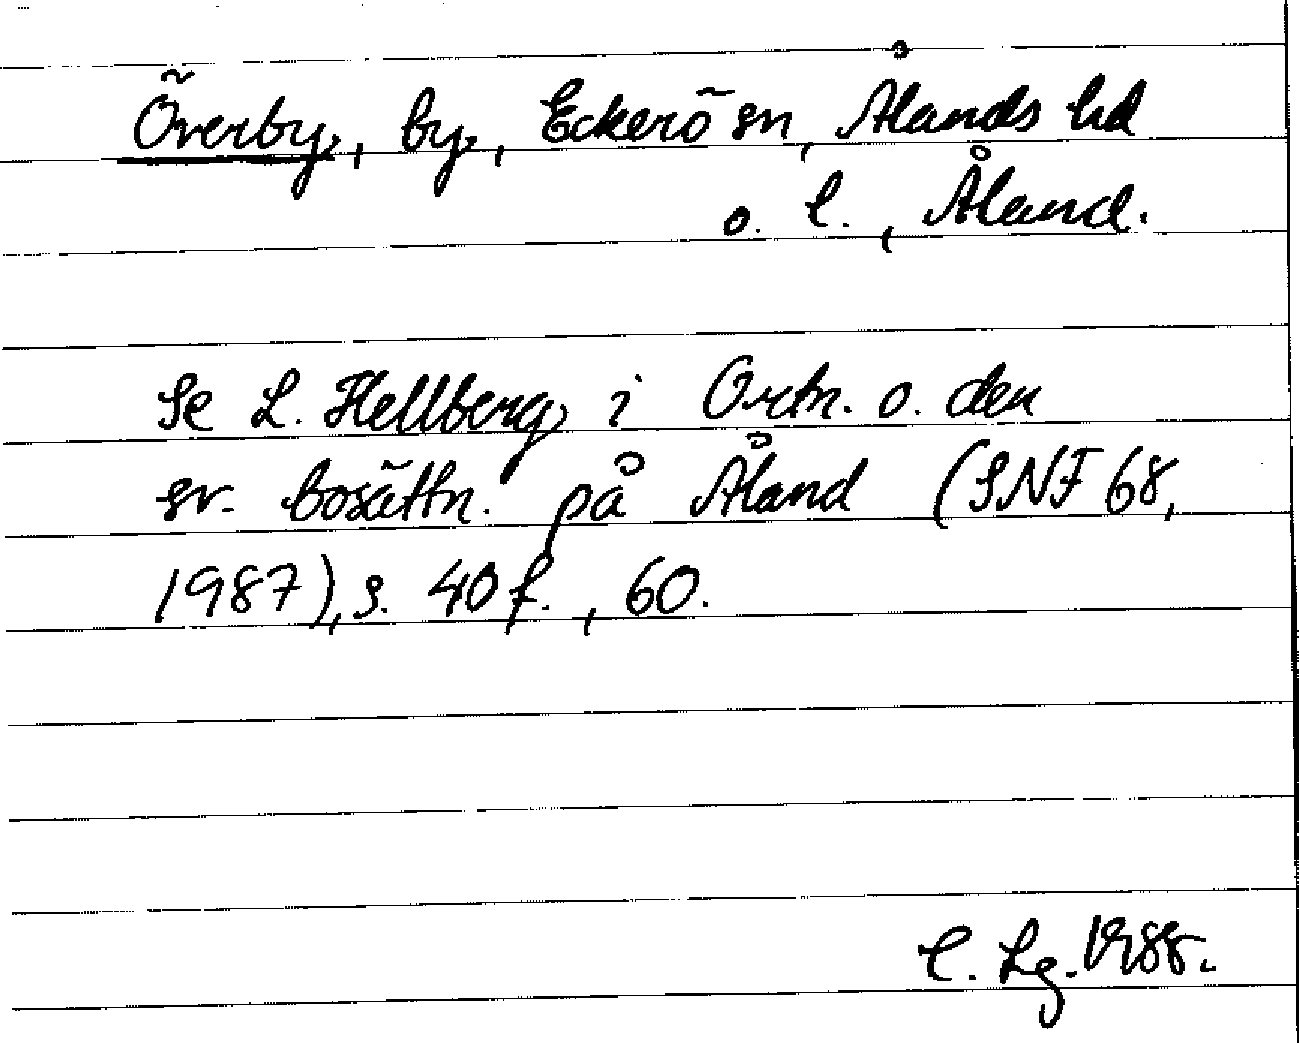 Överby, by, Eckerö sn, Ålands hd
o. l., Åland.
Se L. Hellberg i Ortn. o. den
sv. bosättn. på Åland (SNF 68,
1987), s. 40 f., 60.
C. Lg. 1988.